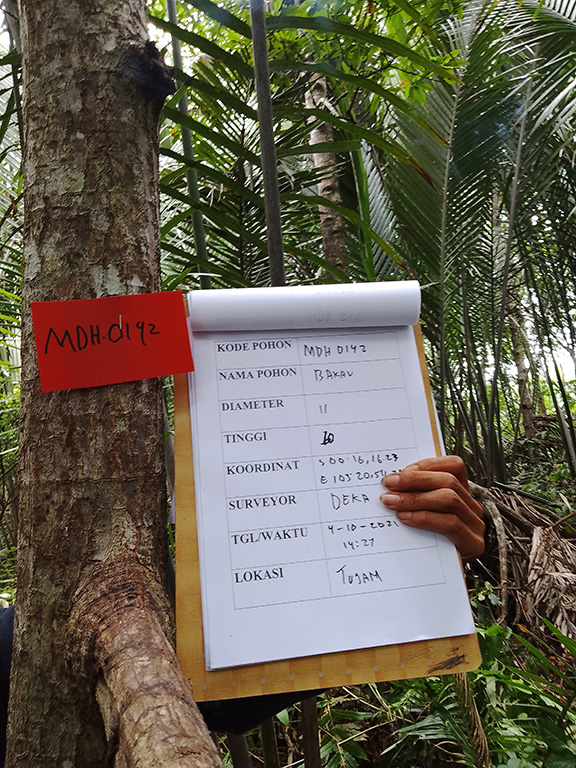 MDH.0192
KODE POHON MDH 0192
NAMA POHON BAKAU
DIAMETER 11
TINGGI 10
KOORDINAT S 00.16,16.23
E 105 20,54
SURVEYOR DEKA
TGL/WAKTU 4-10-2021
14:27
LOKASI TUJAM